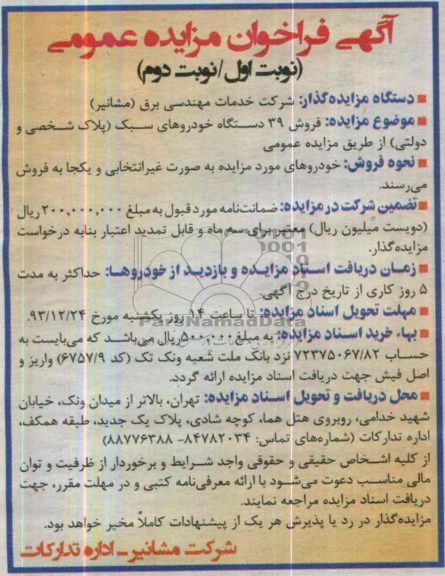 آگهی فراخوان مزایده عمومی
(نوبت اول/نوبت دوم)
■ دستگاه مزایده‌گذار: شرکت خدمات مهندسی برق (مشانیر)
■ موضوع مزایده: فروش ۳۹ دستگاه خودروهای سبک (پلاک شخصی و
دولتی) از طریق مزایده عمومی
■ نحوه فروش: خودروهای مورد مزایده به صورت غیرانتخابی و یکجا به فروش
می‌رسند.
■ تضمین شرکت در مزایده: ضمانت‌نامه مورد قبول به مبلغ ۲۰۰,۰۰۰,۰۰۰ ریال
(دویست میلیون ریال) معتبر برای سه ماه و قابل تمدید اعتبار بنابه درخواست
مزایده‌گذار.
■ زمان دریافت اسناد مزایده و بازدید از خودروها: حداکثر به مدت
۵ روز کاری از تاریخ درج آگهی.
■ مهلت تحویل اسناد مزایده: تا ساعت ۱۴ روز یکشنبه مورخ ۹۳/۱۲/۲۴.
ParsNamadData
■ بهاء خرید اسناد مزایده: به مبلغ ۵۰۰,۰۰۰ ریال می‌باشد که می‌بایست به
حساب ۷۲۳۷۵۰۶۷/۸۲ نزد بانک ملت شعبه ونک تک (کد ۶۷۵۷/۹) واریز و
اصل فیش جهت دریافت اسناد مزایده ارائه گردد.
■ محل دریافت و تحویل اسناد مزایده: تهران، بالاتر از میدان ونک، خیابان
شهید خدامی، روبروی هتل هما، کوچه شادی، پلاک یک جدید، طبقه همکف،
اداره تدارکات (شماره‌های تماس: ۸۴۷۸۲۰۳۴- ۸۸۷۷۶۳۸۸)
از کلیه اشخاص حقیقی و حقوقی واجد شرایط و برخوردار از ظرفیت و توان
مالی مناسب دعوت می‌شود با ارائه معرفی‌نامه کتبی و در مهلت مقرر، جهت
دریافت اسناد مزایده مراجعه نمایند.
مزایده‌گذار در رد یا پذیرش هر یک از پیشنهادات کاملاً مخیر خواهد بود.
شرکت مشانیر- اداره تدارکات